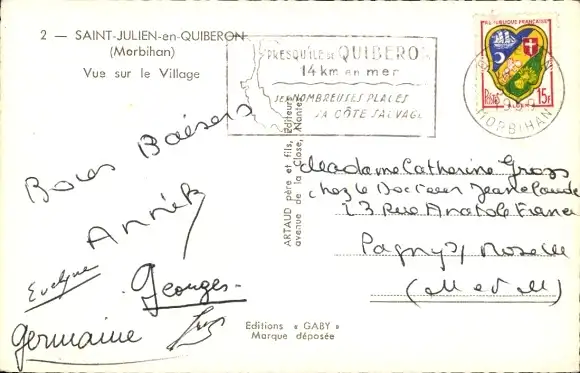 2 — SAINT-JULIEN-en-QUIBERON
(Morbihan)
Vue sur le Village
PRESQU'ILE DE QUIBERON
14 km en mer
SES NOMBREUSES PLAGES
SA CÔTE SAUVAGE
REPUBLIQUE FRANÇAISE
Postes 15F
MORBIHAN
Bons Baisers
Annick
Evelyne
Georges
Germaine
ARTAUD père et fils, Éditeurs
avenue de la Close, Nantes
Madame Catherine Gross
chez le Docteur Jeanclaude
23 Rue Anatole France
Pagny s/ Moselle
(M et M)
Editions « GABY »
Marque déposée